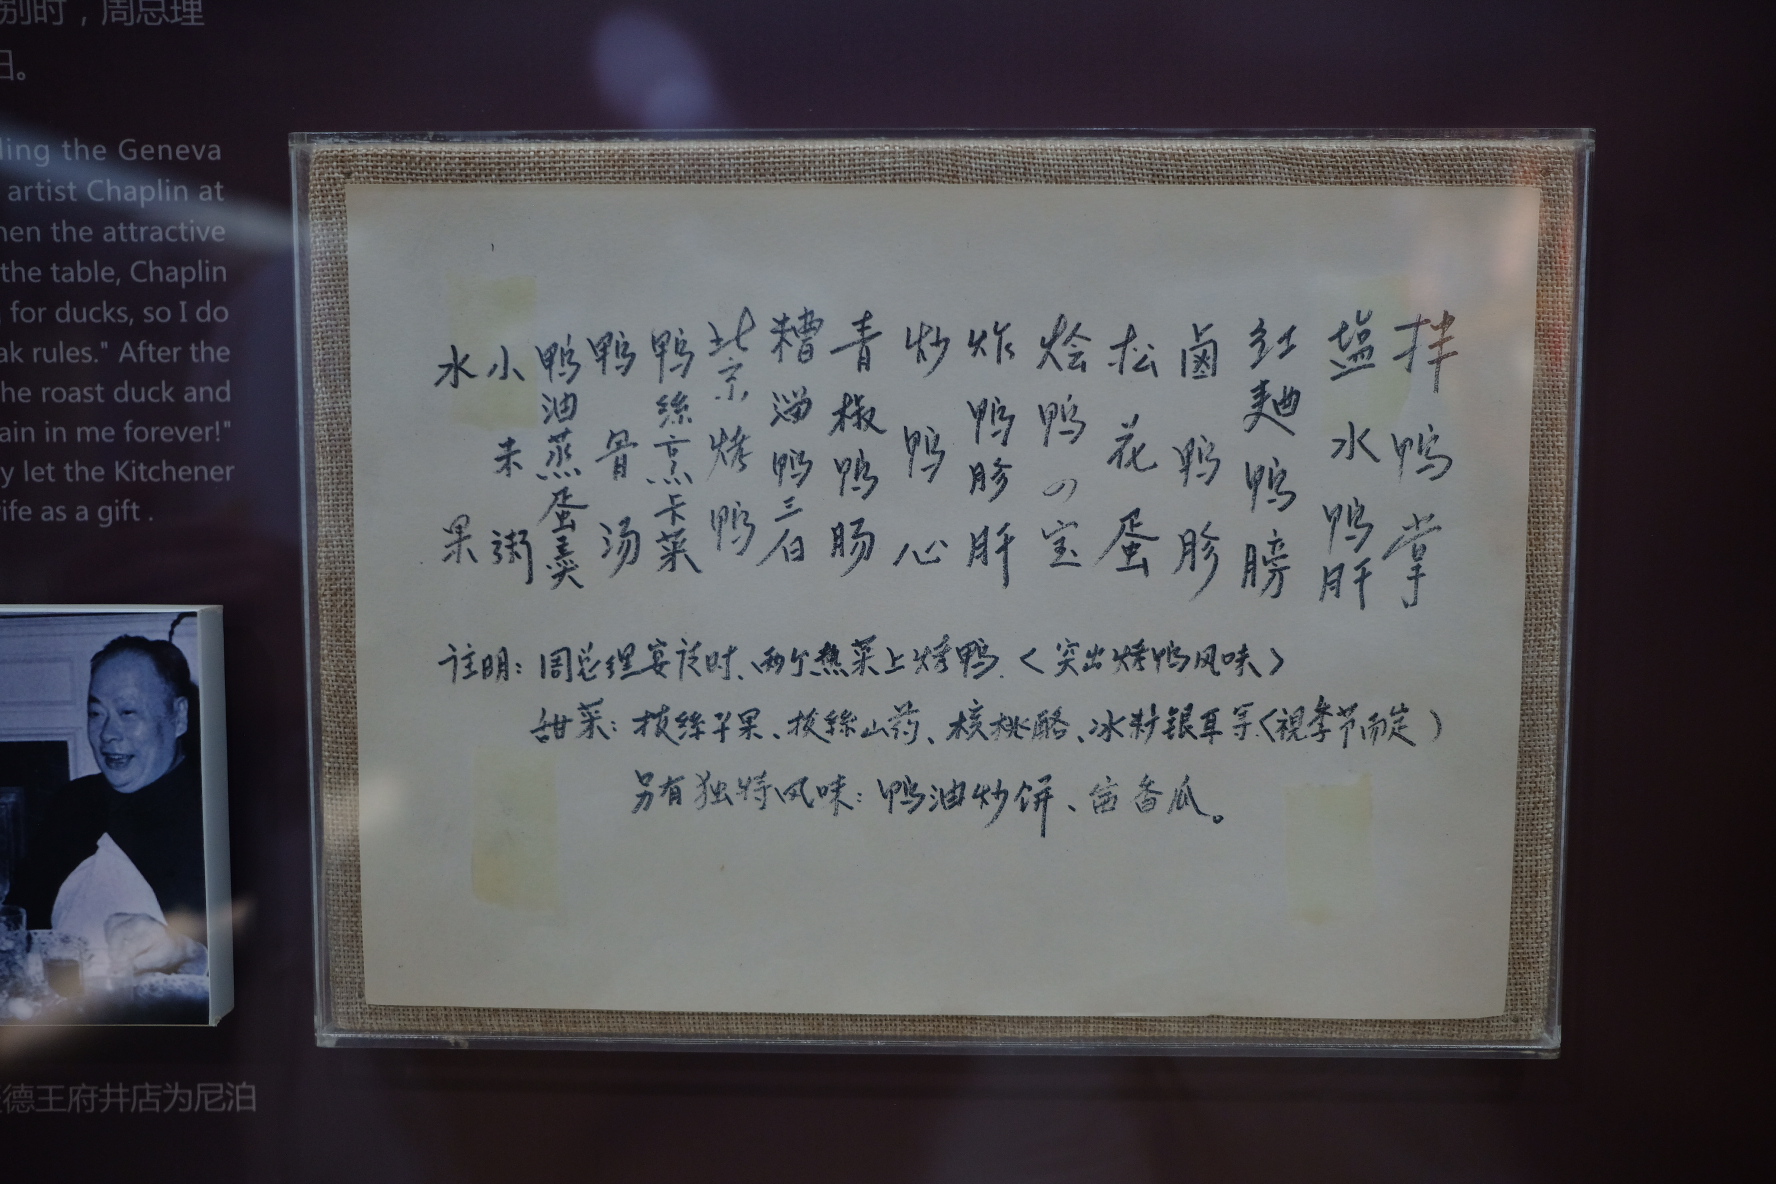 别时，周总理
日。
ling the Geneva
artist Chaplin at
hen the attractive
the table, Chaplin
for ducks, so I do
ak rules." After the
he roast duck and
ain in me forever!"
y let the Kitchener
ife as a gift .
拌鸭掌
塩水鸭肝
红麯鸭膀
卤鸭胗
松花蛋
烩鸭四宝
炸鸭胗肝
炒鸭心
青椒鸭肠
糟溜鸭三白
北京烤鸭
鸭絲烹卡菜
鸭骨汤
鸭油蒸蛋羹
小米粥
水果
注明：周总理宴请时、两个热菜上烤鸭.〈突出烤鸭风味〉
甜菜：拔絲苹果、拔絲山药、核桃酪、冰籵银耳等〈視季节而定）
另有独特风味：鸭油炒饼、卤香瓜。
德王府井店为尼泊